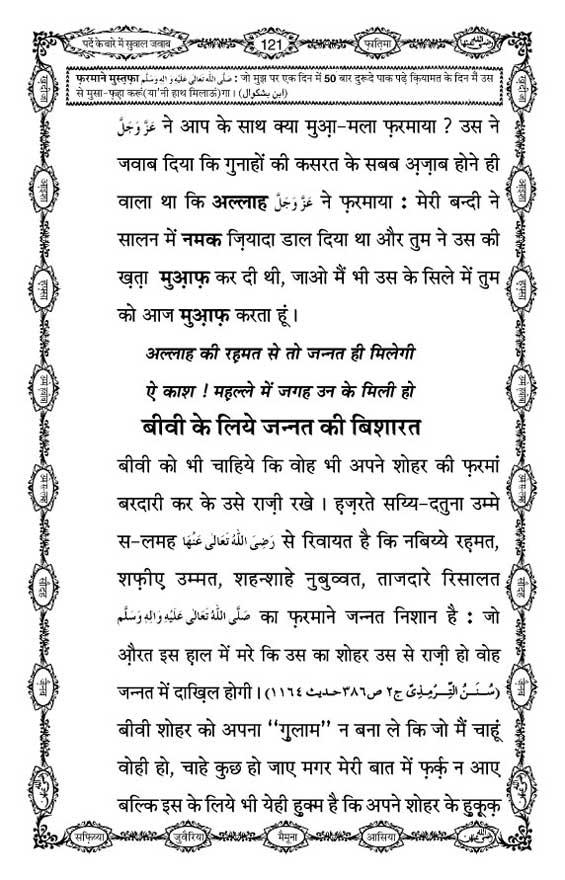 पर्दे के बारे में सुवाल जवाब
121
फ़ातिमा
फ़रमाने मुस्तफ़ा صَلَّى اللّٰهُ تَعَالٰى عَلَيْهِ وَاٰلِهٖ وَسَلَّم : जो मुझ पर एक दिन में 50 बार दुरूदे पाक पढ़े क़ियामत के दिन मैं उस
से मुसा-फ़हा करूं(या'नी हाथ मिलाऊं)गा। (ابن بشكوال)
عَزَّوَجَلَّ ने आप के साथ क्या मुआ़-मला फ़रमाया ? उस ने
जवाब दिया कि गुनाहों की कसरत के सबब अ़ज़ाब होने ही
वाला था कि अल्लाह عَزَّوَجَلَّ ने फ़रमाया : मेरी बन्दी ने
सालन में नमक ज़ियादा डाल दिया था और तुम ने उस की
ख़त़ा मुआ़फ़ कर दी थी, जाओ मैं भी उस के सिले में तुम
को आज मुआ़फ़ करता हूं।
अल्लाह की रह़मत से तो जन्नत ही मिलेगी
ऐ काश ! महल्ले में जगह उन के मिली हो
बीवी के लिये जन्नत की बिशारत
बीवी को भी चाहिये कि वोह भी अपने शोहर की फ़रमां
बरदारी कर के उसे राज़ी रखे । ह़ज़रते सय्यि-दतुना उम्मे
स-लमह رَضِىَ اللّٰهُ تَعَالٰى عَنْهَا से रिवायत है कि नबिय्ये रह़मत,
शफ़ीए उम्मत, शहन्शाहे नुबुव्वत, ताजदारे रिसालत
صَلَّى اللّٰهُ تَعَالٰى عَلَيْهِ وَاٰلِهٖ وَسَلَّم का फ़रमाने जन्नत निशान है : जो
औ़रत इस ह़ाल में मरे कि उस का शोहर उस से राज़ी हो वोह
जन्नत में दाख़िल होगी। (سُنَنُ التِّرْمِذِىّ ج٢ ص٣٨٦ حديث ١١٦٤)
बीवी शोहर को अपना ‘‘ग़ुलाम’’ न बना ले कि जो मैं चाहूं
वोही हो, चाहे कुछ हो जाए मगर मेरी बात में फ़र्क़ न आए
बल्कि इस के लिये भी येही हुक्म है कि अपने शोहर के हुक़ूक़
सफ़िय्या
जुवैरिया
मैमूना
आसिया